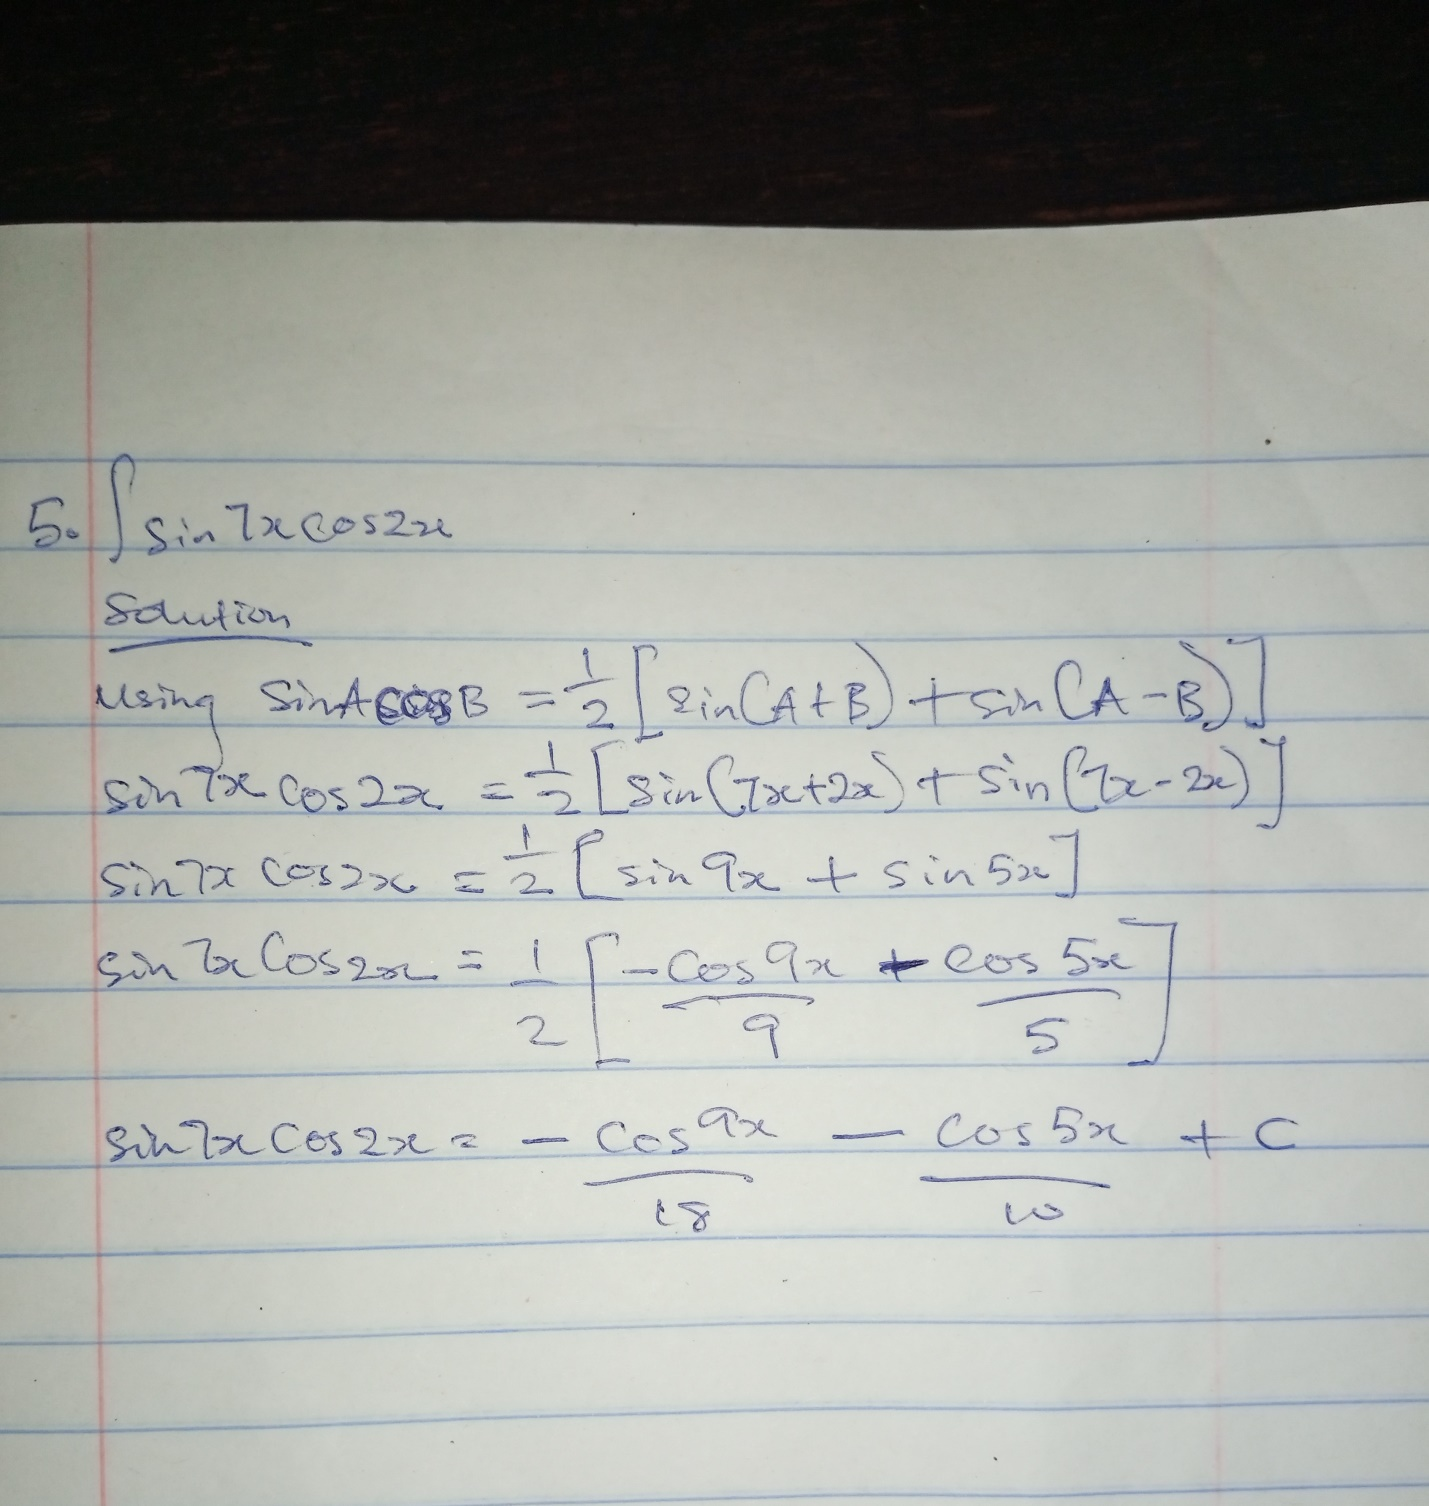 5. ∫ sin 7x cos2x
Solution
Using SinAcosB = 1/2 [sin(A+B) + sin(A-B)]
sin 7x cos 2x = 1/2 [sin(7x+2x) + sin(7x-2x)]
sin 7x cos 2x = 1/2 [sin 9x + sin 5x]
sin 7x Cos 2x = 1/2 [-cos 9x/9 - cos 5x/5]
sin 7x Cos 2x = - Cos 9x/18 - Cos 5x/10 + C